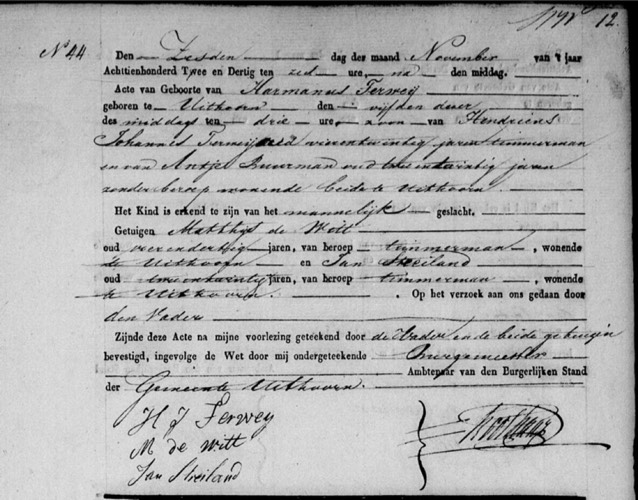 12.
No 44
Den Zesden dag der maand November van 't jaar
Achttienhonderd Twee en Dertig ten zes ure, na den middag.
Acte van Geboorte van Harmanus Ferwey
geboren te Uithoorn den vijfden dezer
des middags ten drie ure, zoon van Hendricus
Johannes Ferweij oud vierentwintig jaren timmerman
en van Antje Buurman oud jaren
zonder beroep wonende beide te Uithoorn.
Het Kind is erkend te zijn van het mannelijk geslacht.
Getuigen Matthijs de Witt
oud vierendertig jaren, van beroep timmerman, wonende
te Uithoorn en Jan Streiland
oud jaren, van beroep timmerman, wonende
te Uithoorn. Op het verzoek aan ons gedaan door
den Vader
Zijnde deze Acte na mijne voorlezing geteekend door de Vader en de beide getuigen
bevestigd, ingevolge de Wet door mij ondergeteekende Burgemeester
Ambtenaar van den Burgerlijken Stand
der Gemeente Uithoorn.
H J Ferwey
M de Witt
Jan Streiland